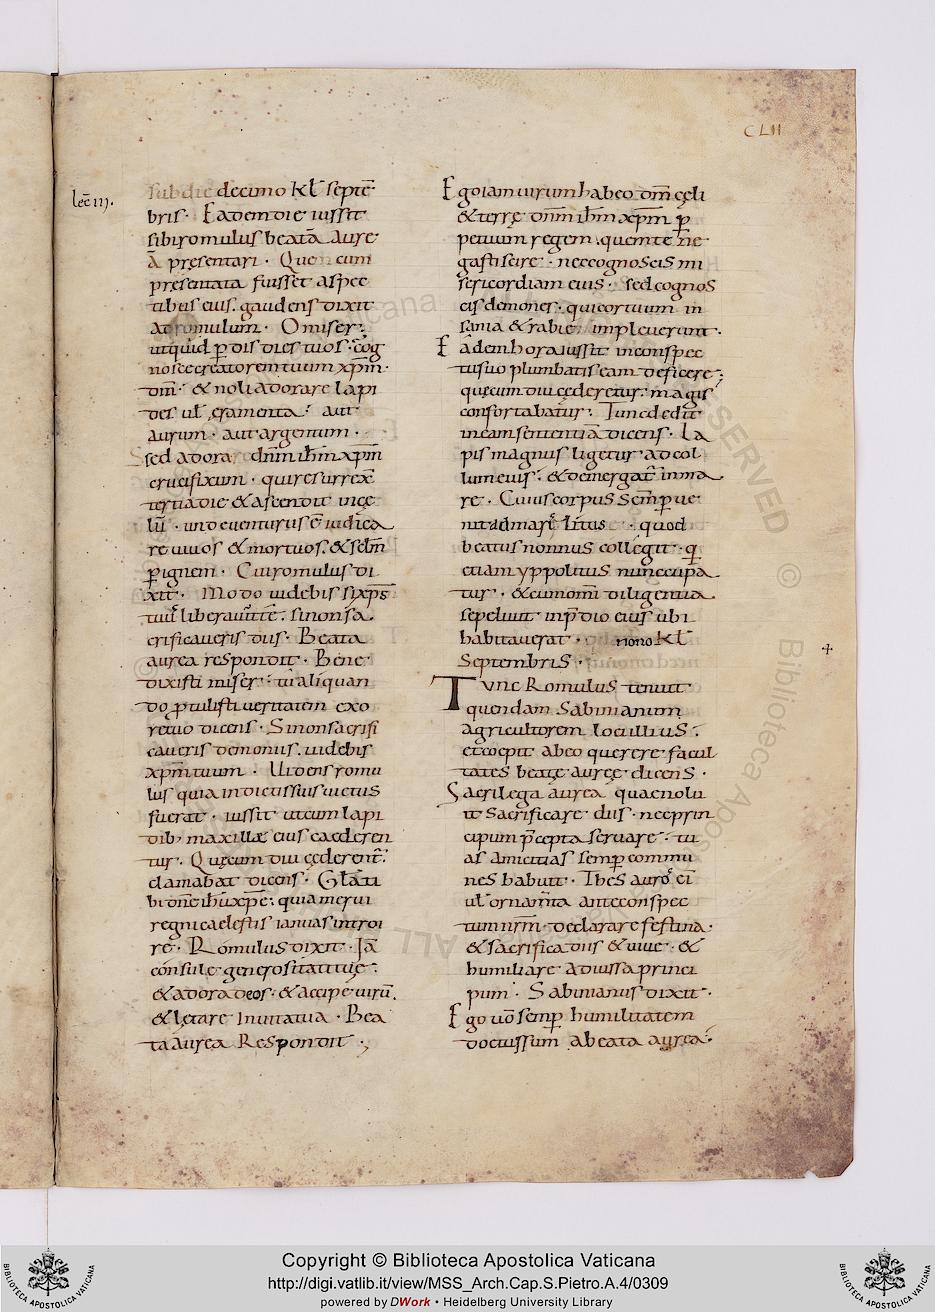 CLII
lec̄ iij.
sub die decimo Kl̄ septē
bris · Eadem die iussit
sibi romulus beatā aure
ā presentari · Que cum
presentata fuisset aspec
tibus eius. gaudens dixit
ad romulum · O miser ·
ut quid ꝑdis dies tuos · cog
nosce creatorem tuum xp̄m ·
dm̄ · & noli adorare lapi
des ul̄ eramenta · aut
aurum · aut argentum ·
Sed adora dn̄m ih̄m xp̄m
crucifixum · qui resurrexē
tertia die & ascendit in cę
lū · unde uenturus ē iudica
re uiuos & mortuos · & sclm̄
ꝑ ignem · Cui romulus di
xit · Modo uidebis si xp̄s
tuus liberauit te · si non sa
crificaueris diis · Beata
aurea respondit · Bene
dixisti miser · tu aliquan
do protulisti ueritatem ex o
re tuo dicens · Si non sacrifi
caueris demoniis · uidebis
xp̄m tuum · Uidens romu
lus quia in dictis suis uictus
fuerat · iussit ut cum lapi
dib; maxillæ eius caederen
tur · Quę cum diu cęderent̄ ·
clamabat dicens · Gl̄a ti
bi dn̄e ih̄u xp̄e · quia merui
regni caelestis ianuas introi
re · Romulus dixit · Iā
consule generositati tuę ·
& adora deos · & accipe uirū ·
& lętare In uita tua · Bea
ta Aurea Respondit ·
Ego iam uirum habeo dm̄ cęli
& terrę dn̄m ih̄m xp̄m ꝑ
petuum regem · quem te ne
gasti scire · nec cognoscis mi
sericordiam eius · sed cognos
cis demones · qui cor tuum in
sania & rabie impleuerunt ·
Eadem hora iussit in conspec
tu suo plumbatis eam deficere ·
quę cum diu cęderetur · magis
confortabatur · Tunc dedit
in eam sententiā dicens · La
pis magnus ligetur ad col
lum eius · & demergat̄ in ma
re · Cuius corpus semper ue
nit ad maris litus · quod
beatus nonnus collegit · q̣
etiam yppolitus nuncupa
tur · & cum omni diligentia
sepeliuit in p̄dio eius ubi
habitauerat · nono Kl̄
Septembris ·
Tunc Romulus tenuit
quendam Sabinianum
agricultorem loci illius ·
et coepit ab eo querere facul
tates beatę aureę dicens ·
Sacrilega aurea quae nolu
it sacrificare diis · nec prin
cipum p̄cepta seruare · tu
as amicitias semper commu
nes habuit · Thes auros ei
ul̄ ornam̄ta ante conspec
tum nr̄m declarare festina ·
& sacrifica diis & uiue · &
humiliare ad iussa princi
pum · Sabinianus dixit ·
Ego uō semper humilitatem
doctus sum a beata aurea ·
Copyright © Biblioteca Apostolica Vaticana
http://digi.vatlib.it/view/MSS_Arch.Cap.S.Pietro.A.4/0309
powered by DWork • Heidelberg University Library
BIBLIOTECA APOSTOLICA VATICANA
BIBLIOTECA APOSTOLICA VATICANA